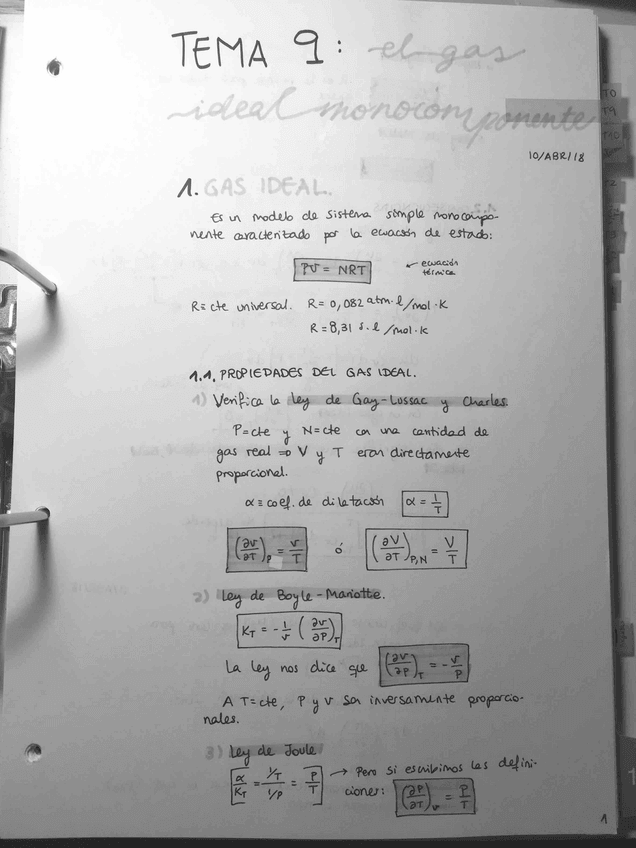 TEMA 9: el gas
ideal monocomponente
10/ABR/18
1. GAS IDEAL.
Es un modelo de sistema simple monocompo-
nente caracterizado por la ecuación de estado:
Pv = NRT ← ecuación
térmica
R≡ cte universal. R= 0,082 atm·l/mol·K
R=8,31 J·l/mol·K
1.1. PROPIEDADES DEL GAS IDEAL.
1) Verifica la ley de Gay-Lussac y Charles.
P=cte y N=cte con una cantidad de
gas real ⇒ V y T eran directamente
proporcional.
α ≡ coef. de dilatación α = 1/T
(∂v/∂T)_P = v/T ó (∂V/∂T)_P,N = V/T
2) Ley de Boyle-Mariotte.
K_T = -1/v (∂v/∂P)_T
La ley nos dice que (∂v/∂P)_T = -v/P
A T=cte, P y v son inversamente proporcio-
nales.
3) Ley de Joule
[α/K_T = 1/T / 1/P = P/T] → Pero si escribimos las defini-
ciones: (∂P/∂T)_v = P/T
1
T0
T9
T10